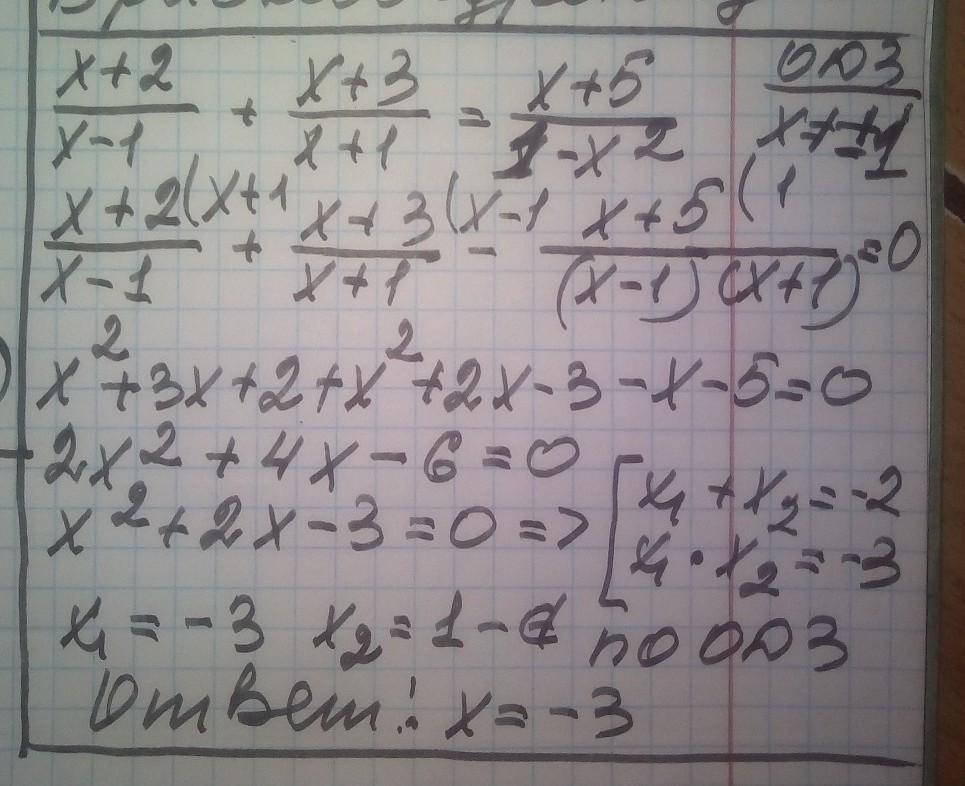 x+2/x-1 + x+3/x+1 = x+5/1-x² ОДЗ x≠±1
x+2(x+1/x-1 + x+3(x-1/x+1 - x+5(1/(x-1)(x+1) =0
x²+3x+2+x²+2x-3-x-5=0
2x²+4x-6=0
x²+2x-3=0=> [x₁+x₂=-2
x₁·x₂=-3
x₁=-3 x₂=1-∉ по ОДЗ
Ответ: x=-3